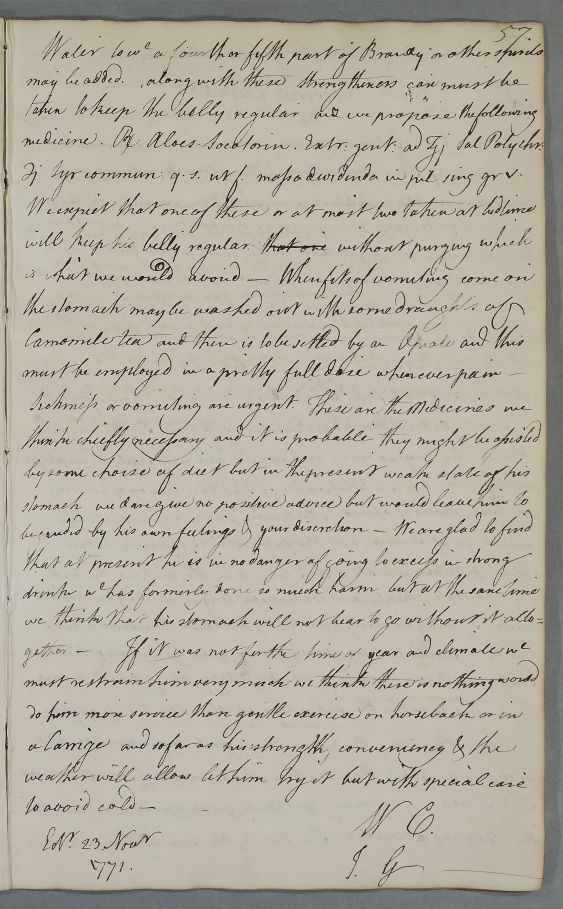 57.
Water to wc a fourth or fifth part of Brandy or other spirits
may be added. along with these strengtheners care must be
taken to keep the belly regular and we propose the following
medicine. ℞ Aloes Socotorin. Extr. gent. aa ʒj Sal Polychr.
Syr commun. q. s. ut f. massa dividenda in pil sing gr v.
We expect that one of these or at most two taken at bed time
will keep his belly regular that one without purging which
is what we would avoid — When fits of vomiting come on
the stomach may be washed out with some draughts of
Camomile tea and then is to be settled by an Opiate and this
must be employed in a pretty full dose whenever pain –
Sickness or vomiting are urgent. These are the Medicines we
think chiefly necessary and it is probable they might be assisted
by some choise of diet but in the present weak state of his
stomach we dare give no positive advice but would leave him to
be guided by his own feelings & your discretion – We are glad to find
that at present he is in no danger of going to excess in strong
drink wc has formerly done so much harm but at the same time
we think that his stomach will not bear to go without it alto=
gether – If it was not for the time of year and climate wc
must restrain him very much we think there is nothing would
do him more service than gentle exercise on horseback or in
a Carrige and so far as his strength, conveniency & the
weather will allow let him try it but with special care
to avoid cold —
W C.
Edr. 23 Novr
J. G
1771.